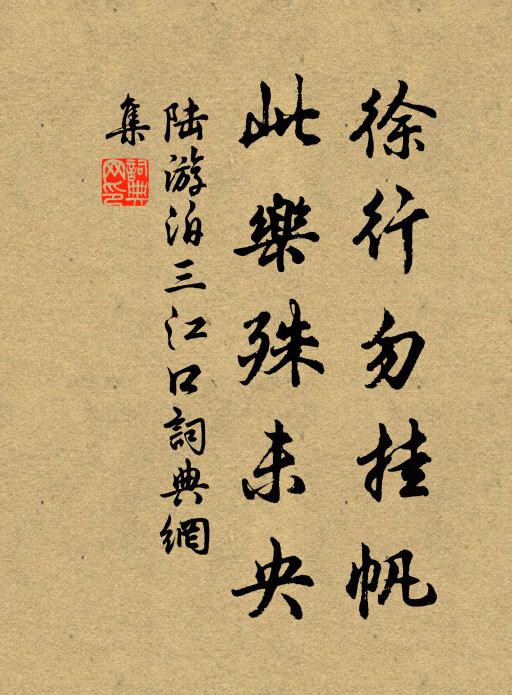 徐行勿挂帆
此樂殊未央
陆游泊三江口詞典網
集
詞典网印